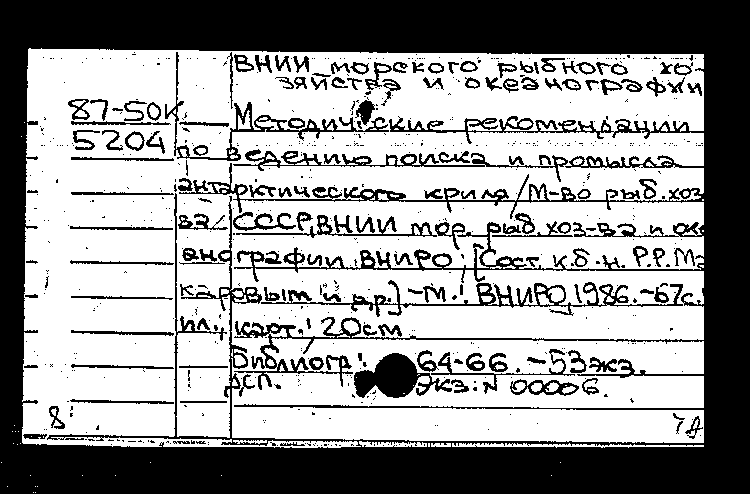 ВНИИ морского рыбного хо-
зяйства и океанографии
87-50К Методические рекомендации
5204 по ведению поиска и промысла
антарктического криля/М-во рыб.хоз
ва/ СССР,ВНИИ мор. рыб.хоз-ва и оке
анографии ВНИРО; [Сост. к.б.н. Р.Р.Ма
каровым и др.].-М.: ВНИРО,1986.-67с.:
ил., карт.; 20см
Библиогр.: 64-66. -53экз.
ДСП. Экз: N 00006.
8